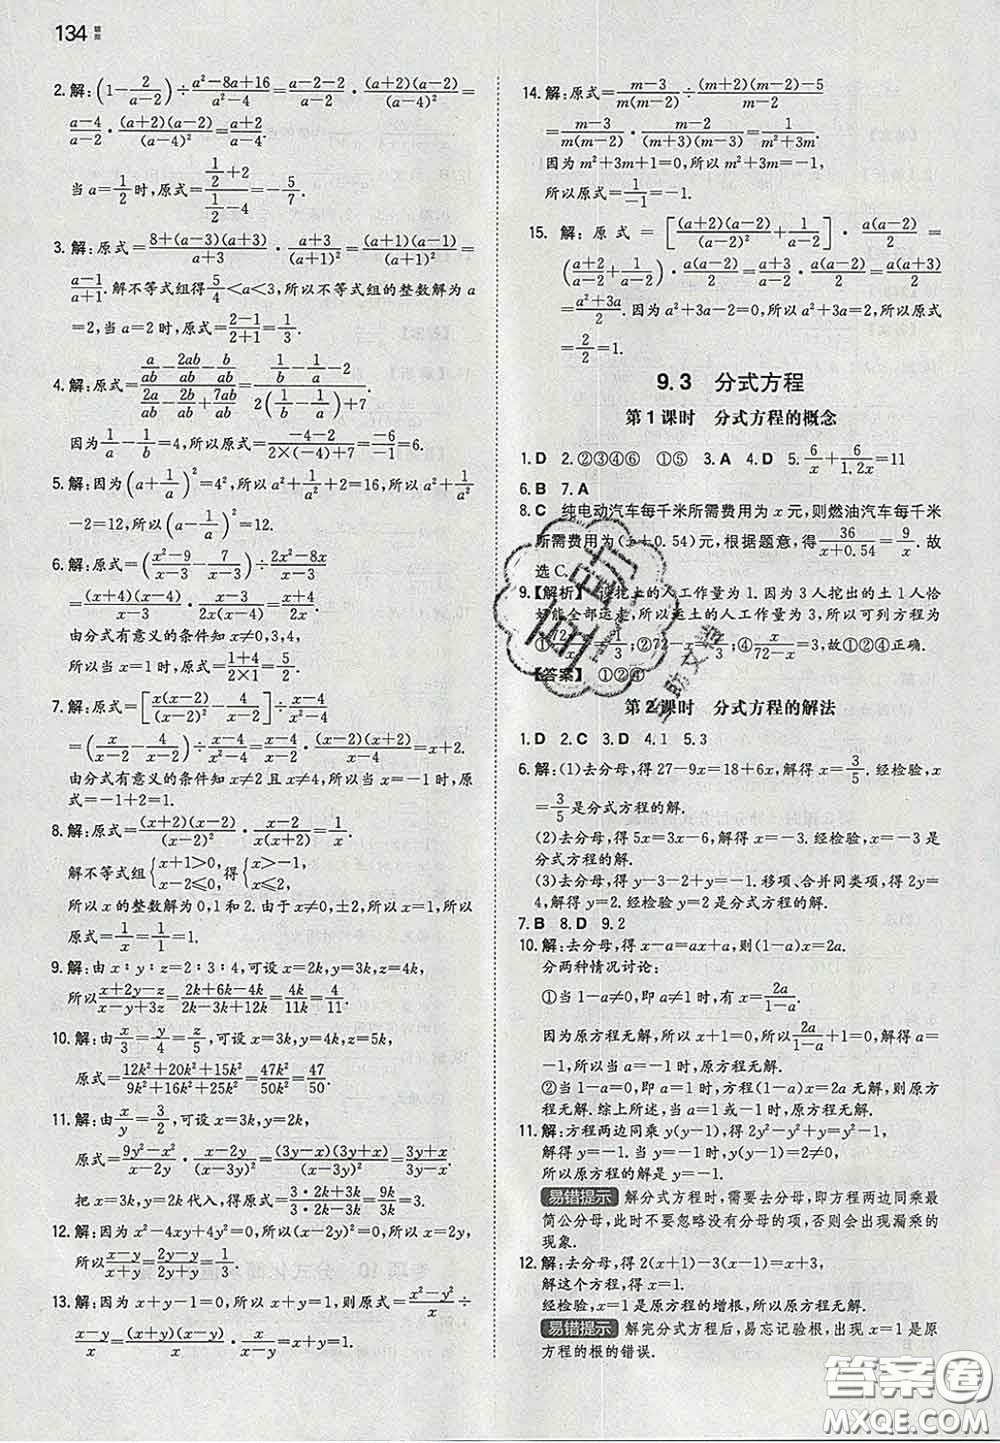 134
2.解:(1-2/(a-2))÷(a²-8a+16)/(a²-4)=(a-2-2)/(a-2)·((a+2)(a-2))/(a-4)²=
(a-4)/(a-2)·((a+2)(a-2))/(a-4)²=(a+2)/(a-4).
当a=1/2时,原式=(1/2+2)/(1/2-4)=-5/7.
3.解:原式=(8+(a-3)(a+3))/(a+3)·(a+3)/(a+1)²=((a+1)(a-1))/(a+1)²=
(a-1)/(a+1).解不等式组得5/4<a<3,所以不等式组的整数解为a
=2,当a=2时,原式=(2-1)/(2+1)=1/3.
4.解:原式=(a/ab-2ab/ab-b/ab)/(2a/ab-2b/ab+7ab/ab)=(1/b-1/a-2)/(2(1/b-1/a)+7).
因为1/a-1/b=4,所以原式=(-4-2)/(2×(-4)+7)=(-6)/(-1)=6.
5.解:因为(a+1/a)²=4²,所以a²+1/a²+2=16,所以a²+1/a²
-2=12,所以(a-1/a)²=12.
6.解:原式=((x²-9)/(x-3)-7/(x-3))÷(2x²-8x)/(x-3)
=((x+4)(x-4))/(x-3)·(x-3)/(2x(x-4))=(x+4)/2x.
由分式有意义的条件知x≠0,3,4,
所以当x=1时,原式=(1+4)/(2×1)=5/2.
7.解:原式=[x(x-2)/(x-2)²-4/(x-2)]÷(x-4)/(x²-4)
=(x/(x-2)-4/(x-2))÷(x-4)/(x²-4)=(x-4)/(x-2)·((x+2)(x-2))/(x-4)=x+2.
由分式有意义的条件知x≠2且x≠4,所以当x=-1时,原
式=-1+2=1.
8.解:原式=((x+2)(x-2))/(x-2)²·(x-2)/(x(x+2))=1/x.
解不等式组{x+1>0, x-2≤0,得{x>-1, x≤2.
所以x的整数解为0,1和2.由于x≠0,±2,所以x=1,所以
原式=1/x=1/1=1.
9.解:由x:y:z=2:3:4,可设x=2k,y=3k,z=4k,
所以(x+2y-z)/(x-y+3z)=(2k+6k-4k)/(2k-3k+12k)=4k/11k=4/11.
10.解:由x/3=y/4=z/5,可设x=3k,y=4k,z=5k,
原式=(12k²+20k²+15k²)/(9k²+16k²+25k²)=47k²/50k²=47/50.
11.解:由x/y=3/2,可设x=3k,y=2k,
原式=(9y²-x²)/(x-2y)·(x-2y)/(3xy-x²)=((3y-x)(3y+x))/(x(3y-x))=(3y+x)/x.
把x=3k,y=2k代入,得原式=(3·2k+3k)/3k=9k/3k=3.
12.解:因为x²-4xy+4y²=0,所以(x-2y)²=0,所以x=2y,
所以(x-y)/(x+y)=(2y-y)/(2y+y)=1/3.
13.解:因为x+y-1=0,所以x+y=1,则原式=(x²-y²)/x÷
(x-y)/x=((x+y)(x-y))/x·x/(x-y)=x+y=1.
14.解:原式=(m-3)/(m(m-2))÷((m+2)(m-2)-5)/(m-2)
=(m-3)/(m(m-2))·(m-2)/((m+3)(m-3))=1/(m²+3m).
因为m²+3m+1=0,所以m²+3m=-1,
所以原式=1/-1=-1.
15.解:原式=[((a+2)(a-2))/(a-2)²+1/(a-2)]·a(a-2)/2=
((a+2)/(a-2)+1/(a-2))·a(a-2)/2=(a+3)/(a-2)·a(a-2)/2
=(a²+3a)/2.因为a²+3a-2=0,所以a²+3a=2,所以原式
=2/2=1.
9.3 分式方程
第1课时 分式方程的概念
1.D 2.②③④⑥ ①⑤ 3.A 4.D 5.6/x+6/1.2x=11
6.B 7.A
8.C 纯电动汽车每千米所需费用为x元,则燃油汽车每千米
所需费用为(x+0.54)元,根据题意,得36/(x+0.54)=9/x.故
选C.
9.【解析】设挖土的人工作量为1.因为3人挖出的土1人恰
好能全部运走,所以运土的人工作量为3,所以可列方程为
①(72-x)/x=1/3;②72-x=x/3;④x/(72-x)=3.故①②④正确.
【答案】①②④
第2课时 分式方程的解法
1.D 2.C 3.D 4.1 5.3
6.解:(1)去分母,得27-9x=18+6x,解得x=3/5.经检验,x
=3/5是分式方程的解.
(2)去分母,得5x=3x-6,解得x=-3.经检验,x=-3是
分式方程的解.
(3)去分母,得y-3-2+y=-1.移项、合并同类项,得2y=
4,解得y=2.经检验y=2是分式方程的解.
7.B 8.D 9.2
10.解:去分母,得x-a=ax+a,则(1-a)x=2a.
分两种情况讨论:
①当1-a≠0,即a≠1时,x=2a/(1-a).
因为原方程无解,所以x+1=0,所以2a/(1-a)+1=0,解得a=
-1,所以当a=-1时,原方程无解;
②当1-a=0,即a=1时,方程(1-a)x=2a无解,所以原方
程无解.综上所述,当a=1或-1时,原方程无解.
11.解:方程两边同乘y(y-1),得2y²-y²+y=y²-1,
解得y=-1.当y=-1时,y(y-1)≠0,
所以原方程的解是y=-1.
易错提示 解分式方程时,需要去分母,即方程两边同乘最
简公分母,此时不要忽略没有分母的项,否则会出现漏乘的
现象.
12.解:去分母,得2(x+1)-3(x-1)=x+3,
解这个方程,得x=1.
经检验,x=1是原方程的增根,所以原方程无解.
易错提示 解完分式方程后,易忘记验根,出现x=1是原
方程的根的错误.
答案圈
MXQE.COM